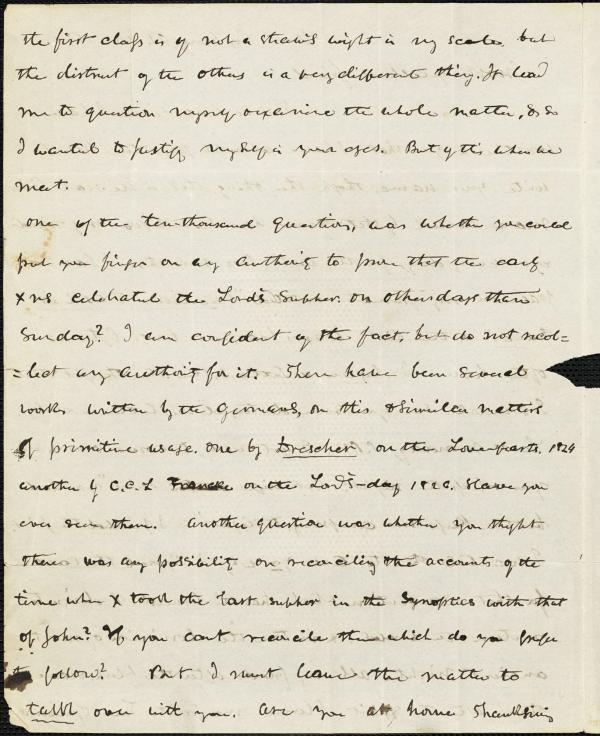 the first class is of not a straw's weight in my scale, but
the distrust of the others is a very different thing. It lead
me to question myself & examine the whole matter, & so
I wanted to justify myself in your eyes. But of this when we
meet.
one of the ten thousand questions, was whether you could
put your finger on any authority to prove that the early
Xns celebrated the Lord's Supper on other days than
Sunday? I am confident of the fact, but do not recol=
=lect any authority for it. There have been several
works written by the Germans, on this & similar matters
of primitive usage. one by Drescher on the Love feasts. 1824
another by C.C.L Francke on the Lord's-day 1826. Have you
ever seen them. Another question was whether you thght
there was any possibility on reconciling the accounts of the
time when X took the last supper in the Synoptics with that
of John? If you cant reconcile them which do you prefer
to follow? But I must leave the matter to
talk over with you. Are you at home Thanksgiving